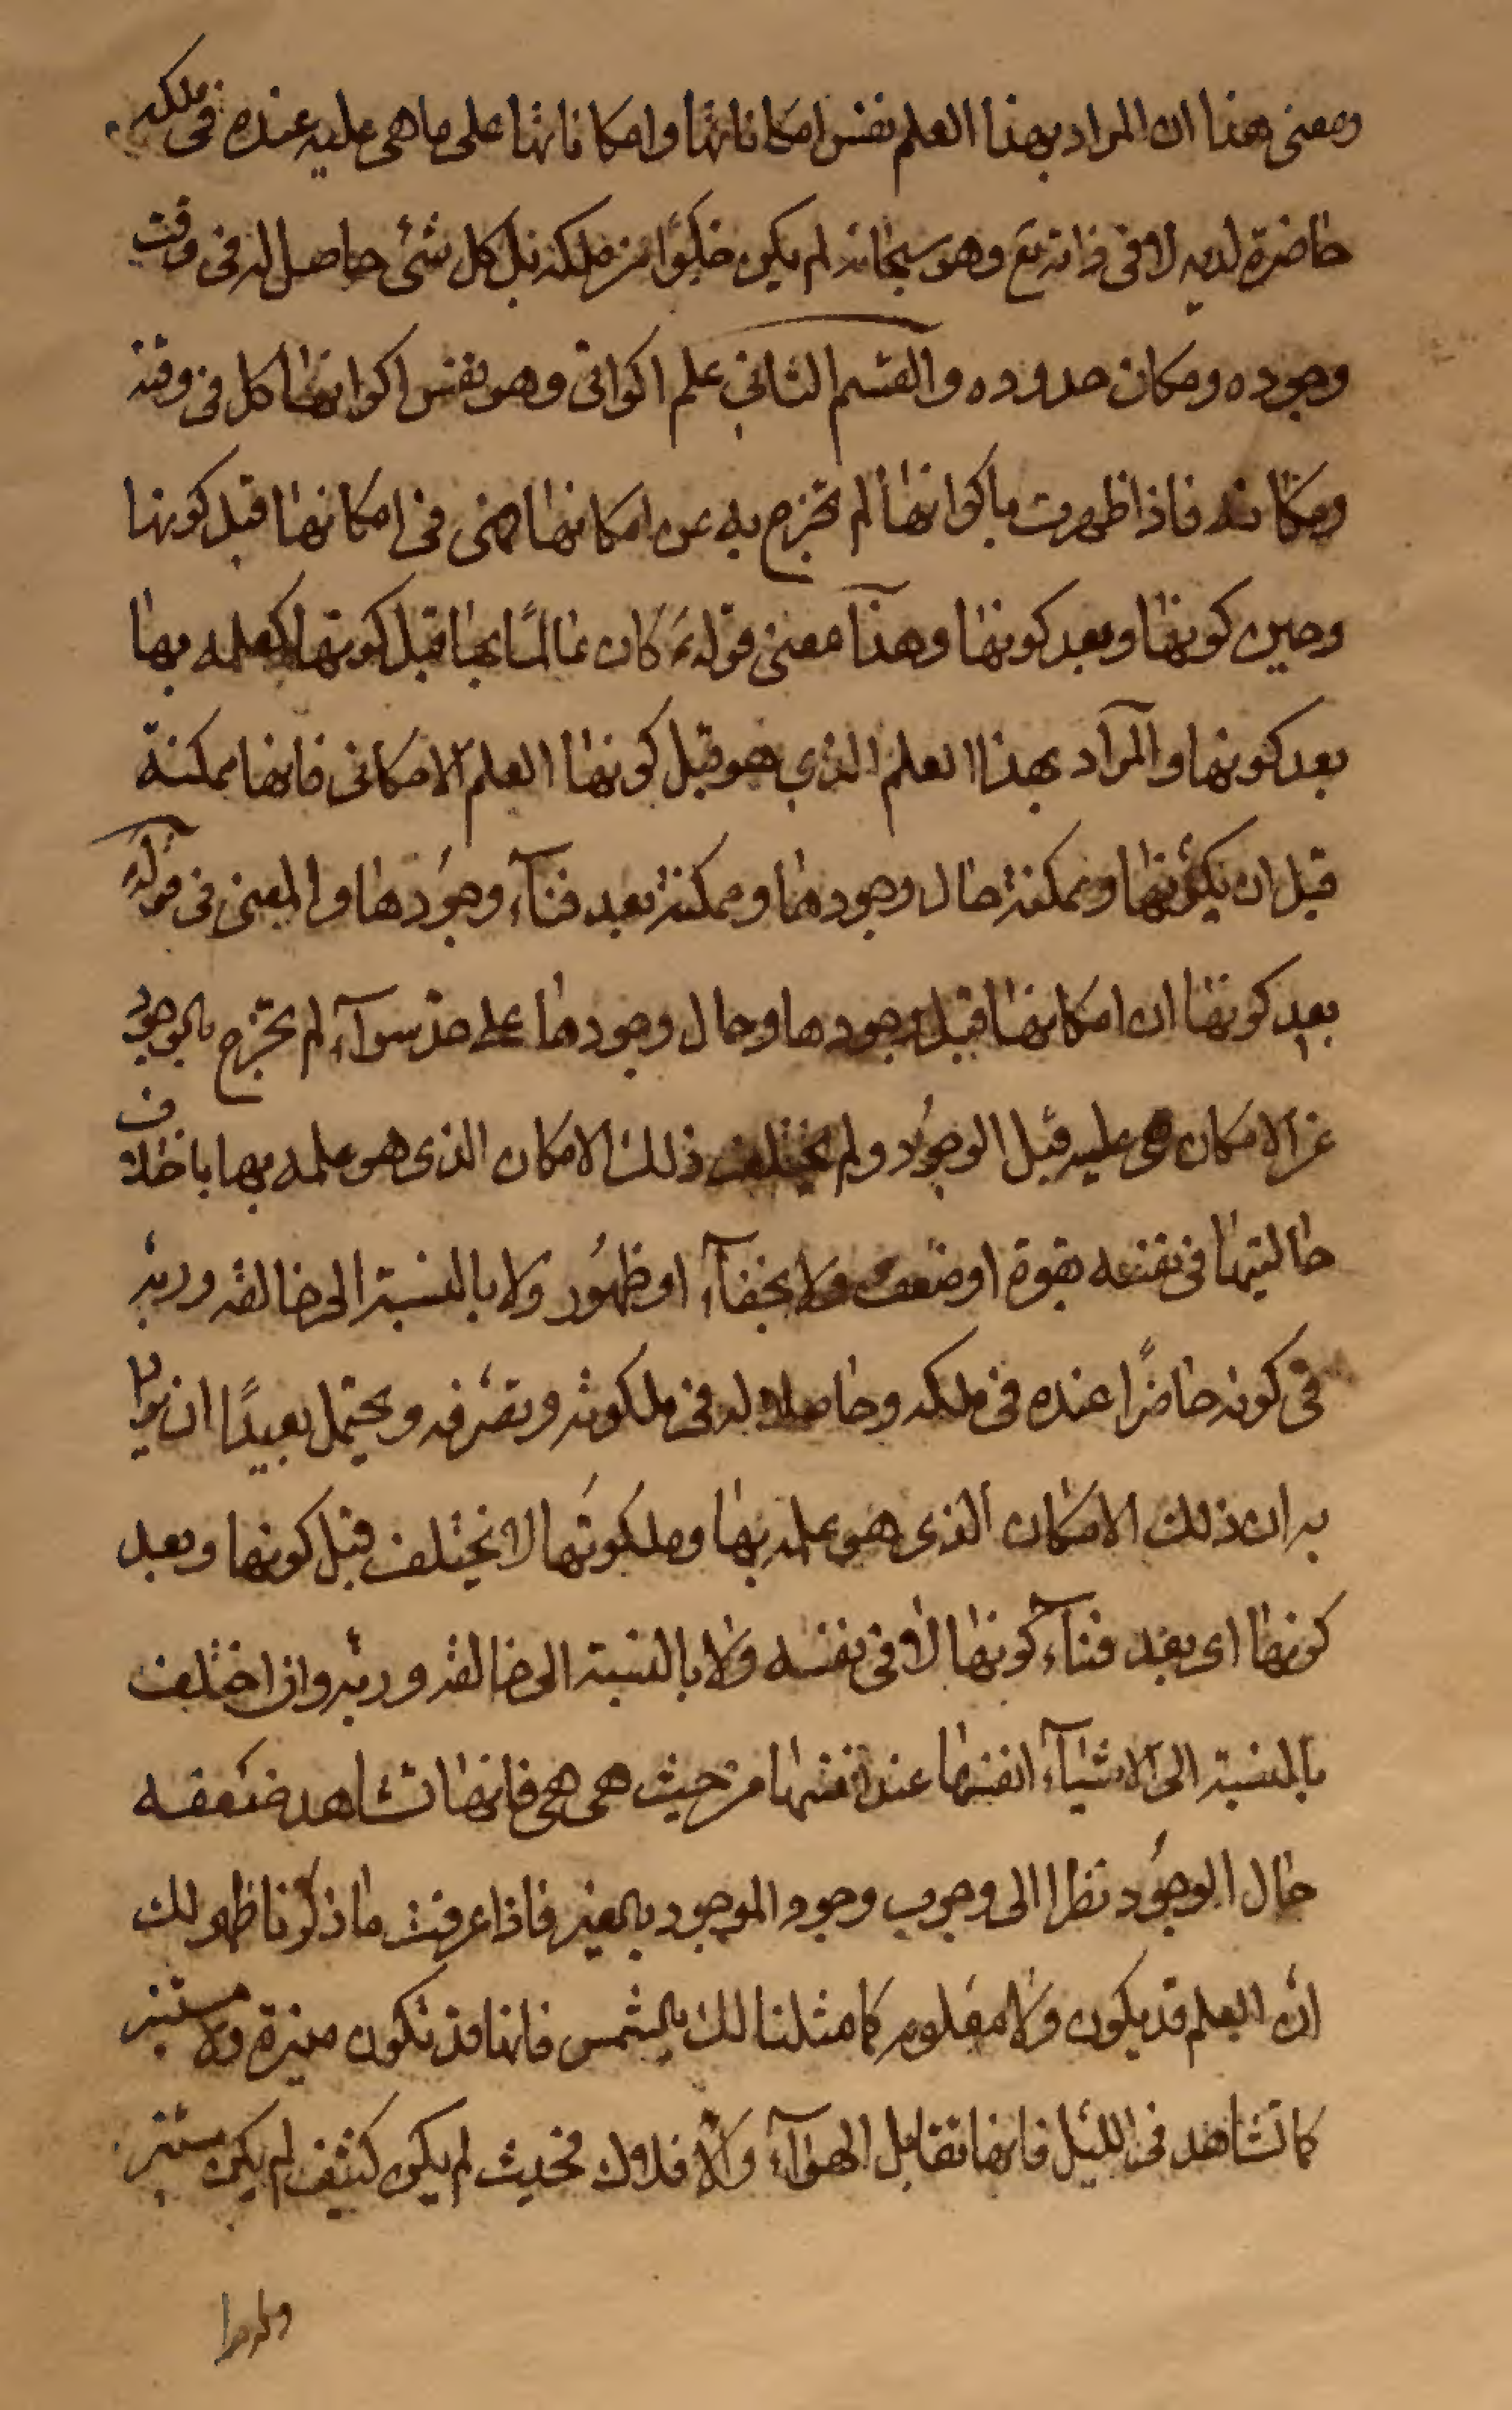 ومعنى هذا ان المراد بهذا العلم نفس امكاناتها وامكاناتها على ما هى عليه عنده فى ملكه
حاضرة لديه لا فى ذاته تع وهو سبحانه لم يكن خلوًا من ملكه بل كل شئ حاصل له فى وقت
وجوده ومكان حدوده والقسم الثانى علم اكوانى وهو نفس اكوانها كل فى وقته
ومكانه فاذا ظهرت باكوانها لم تخرج به عن امكانها فهى فى امكانها قبل كونها
وحين كونها وبعد كونها وهذا معنى قوله كان عالمًا بها قبل كونها كعلمه بها
بعد كونها والمراد بهذا العلم الذى هو قبل كونها العلم الامكانى فانها ممكنة
قبل ان يكونها وممكنة حال وجودها وممكنة بعد فنآء وجودها والمعنى فى قوله
بعد كونها ان امكانها قبل وجودها وحال وجودها على حد سوآء لم تخرج بالوجود
عن الامكان هى عليه قبل الوجود ولم يختلف ذلك الامكان الذى هو علمه بها باختلاف
حالتيها فى نفسه بقوة او ضعف ولا بخفآء او ظهور ولا بالنسبة الى خالقه وربه
فى كونه حاضرًا عنده فى ملكه وحاصلا له فى ملكوته وتصرفه ويحتمل بعيدًا ان يراد
به ان ذلك الامكان الذى هو علمه بها وملكوتها لا يختلف قبل كونها وبعد
كونها اى بعد فنآء كونها لا فى نفسه ولا بالنسبة الى خالقه وربه وان اختلف
بالنسبة الى الاشيآء انفسها عند انفسها من حيث هى هى فانها تشاهد ضعفه
حال الوجود نظرا الى وجوب وجود الموجود بالغير فاذا عرفت ما ذكرنا ظهر لك
ان العلم قد يكون ولا معلوم كما مثلنا لك بالشمس فانها قد تكون منيرة ولا مستنير
كما تشاهد فى الليل فانها تقابل الهوآء والافلاك فحيث لم يكن كثيف لم يكن مستنير